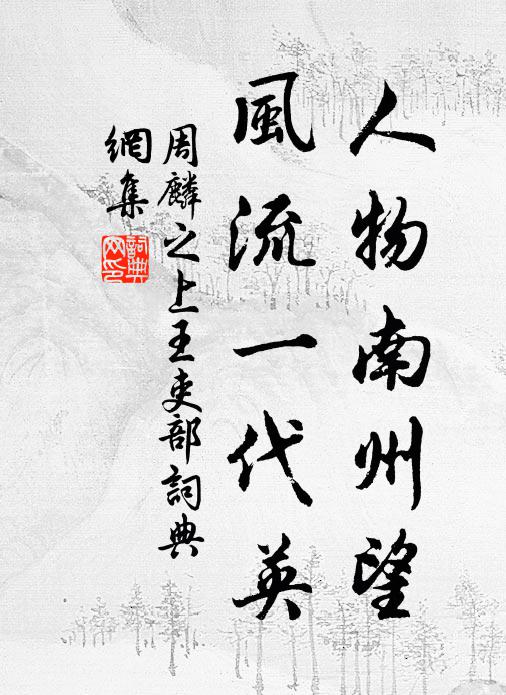 人物南州望
風流一代英
周麟之上王吏部詞典
網集
詞典
网印